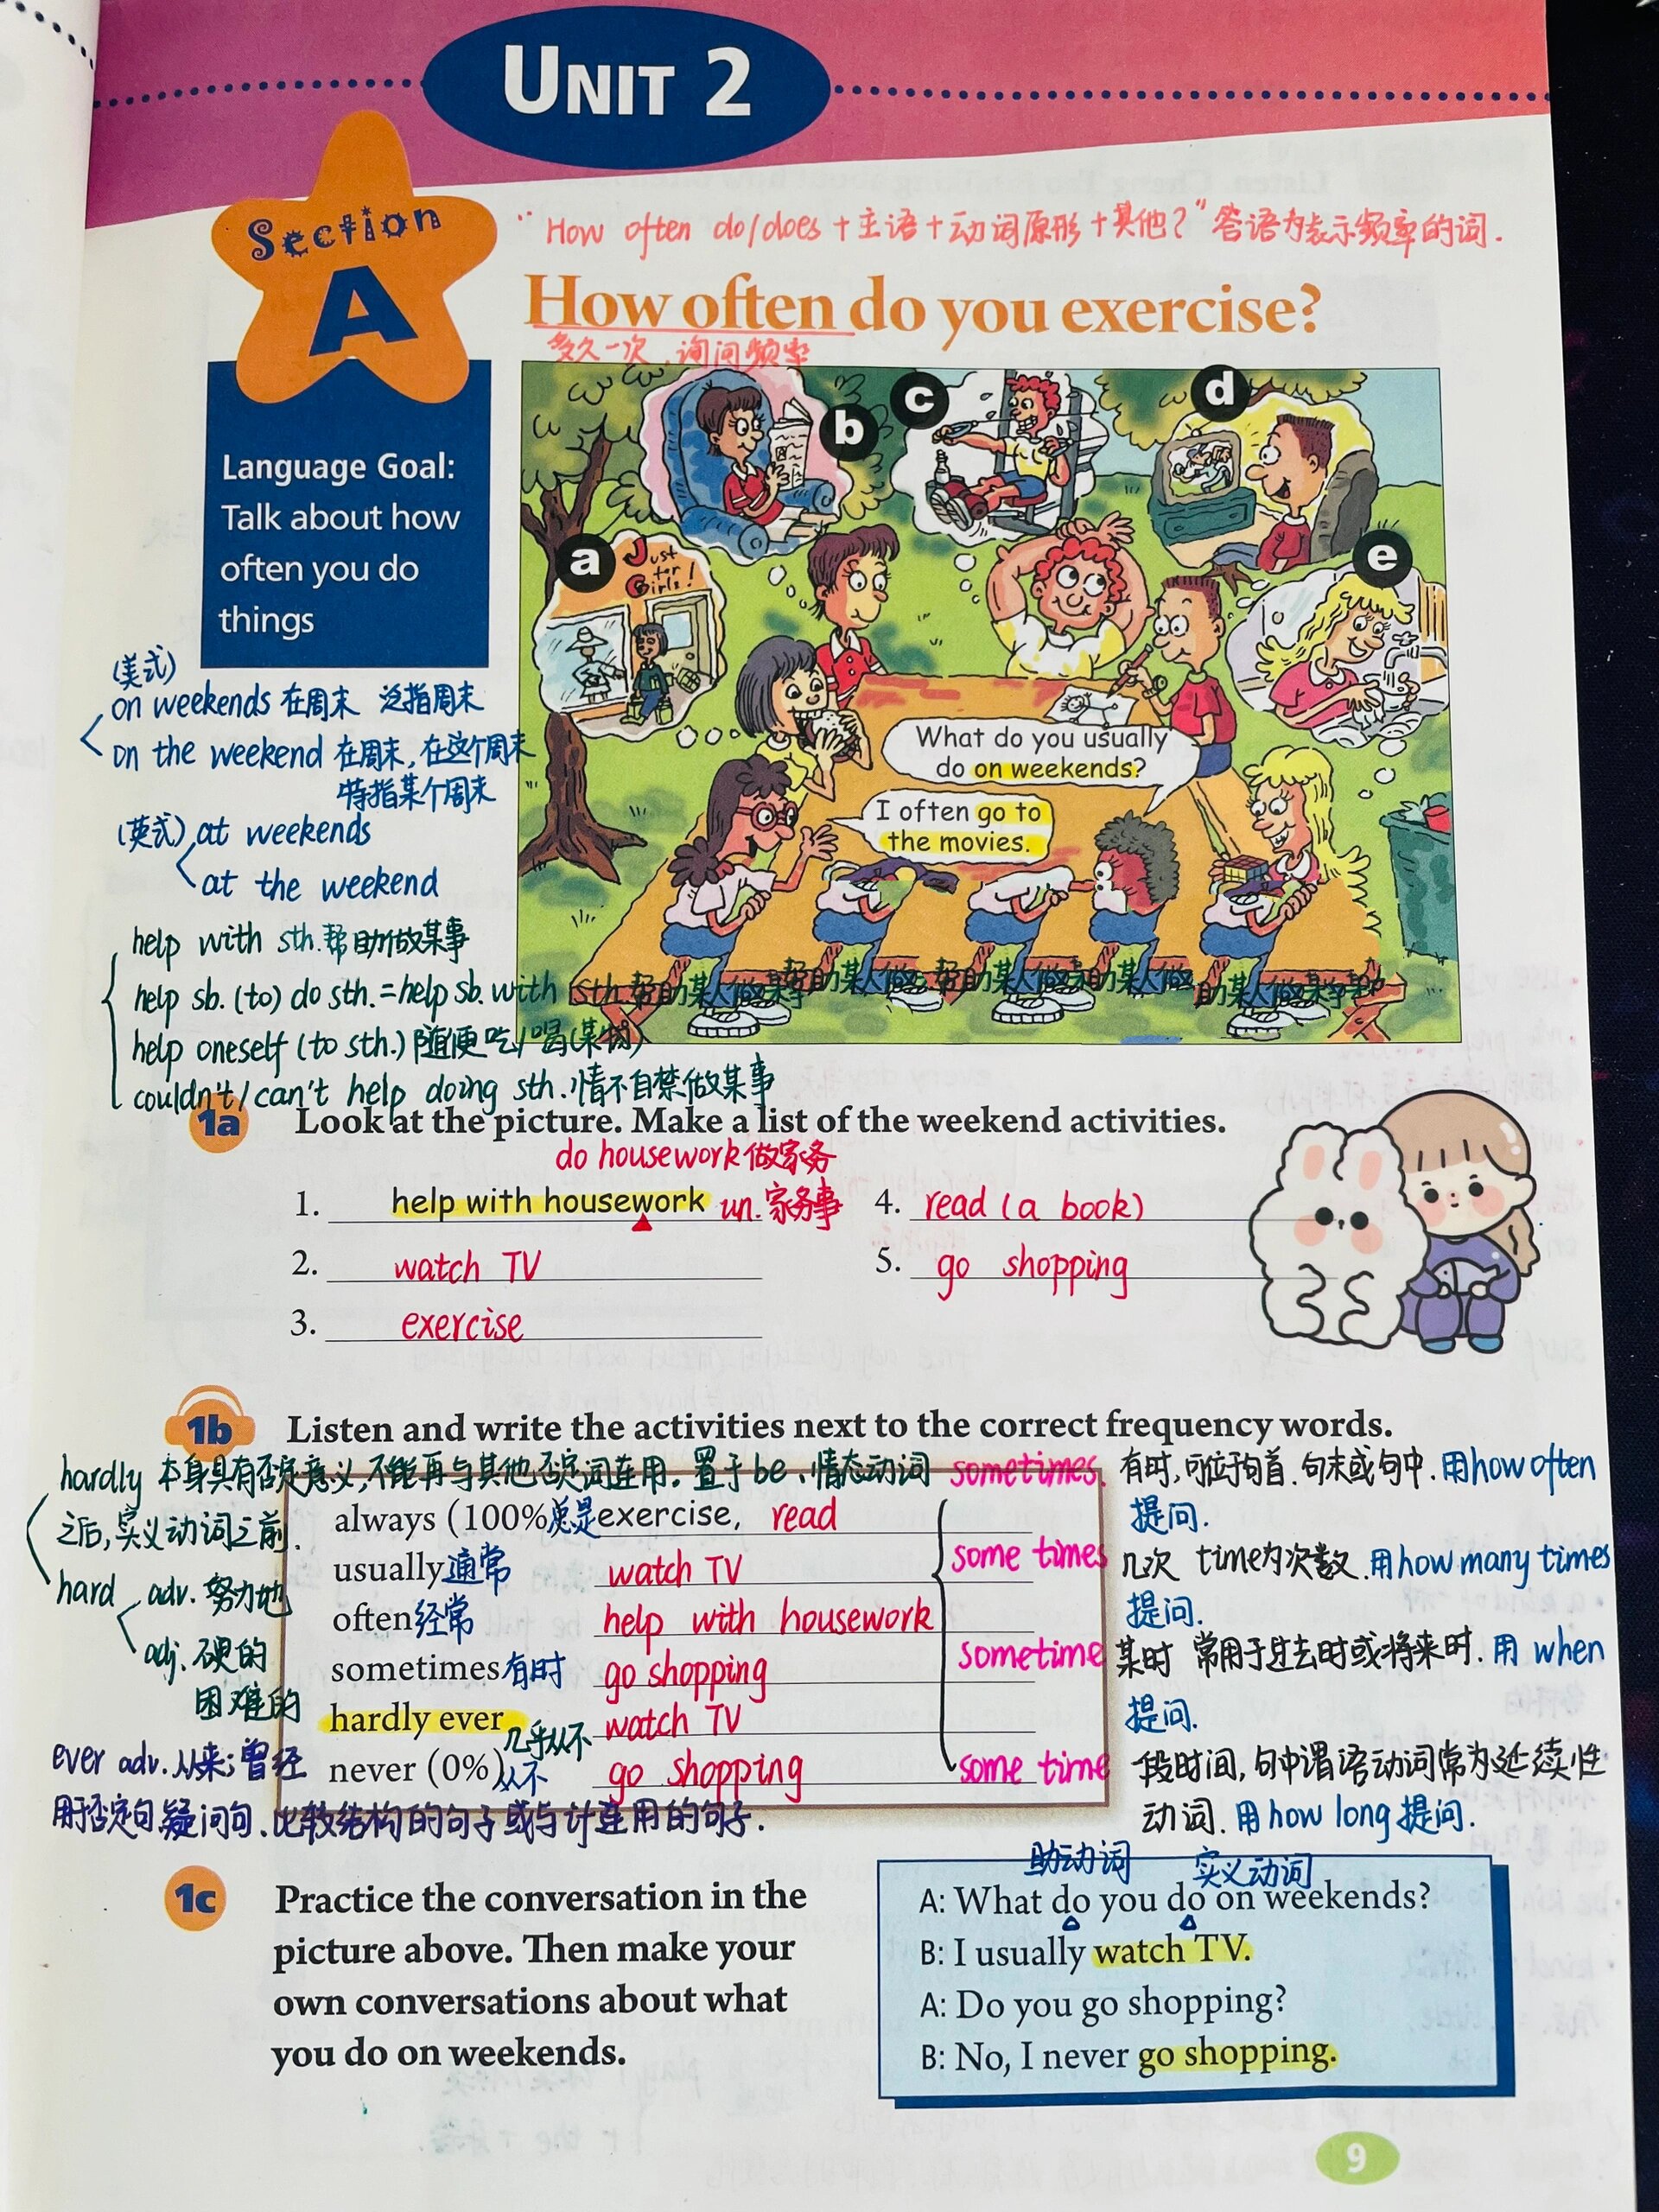 UNIT 2
Section
A
"How often do/does+主语+动词原形+其他?"答语为表示频率的词.
How often do you exercise?
多久一次,询问频率
Language Goal:
Talk about how
often you do
things
a
b
c
d
e
Just
for
Girls!
What do you usually
do on weekends?
I often go to
the movies.
(美式)
on weekends 在周末 泛指周末
on the weekend 在周末,在这个周末
特指某个周末
(英式) at weekends
at the weekend
help with sth.帮助做某事
help sb. (to) do sth.=help sb. with sth.帮助某人做某事
help oneself (to sth.) 随便吃/喝(某物)
couldn't/can't help doing sth.情不自禁做某事
1a Look at the picture. Make a list of the weekend activities.
do housework 做家务
1. help with housework un.家务事
2. watch TV
3. exercise
4. read (a book)
5. go shopping
1b Listen and write the activities next to the correct frequency words.
hardly 本身具有否定意义,不能再与其他否定词连用.置于be、情态动词
之后,实义动词之前.
hard adv. 努力地
adj. 硬的
困难的
always (100%总是 exercise, read
usually通常 watch TV
often经常 help with housework
sometimes有时 go shopping
hardly ever 几乎从不 watch TV
never (0%)从不 go shopping
ever adv.从来;曾经
用于否定句、疑问句、比较结构的句子或与计连用的句子.
sometimes. 有时,可位于句首.句末或句中.用how often
提问.
some times 几次 time为次数.用how many times
提问.
sometime 某时 常用于过去时或将来时.用 when
提问.
some time 段时间,句中谓语动词常为延续性
动词.用how long提问.
1c Practice the conversation in the
picture above. Then make your
own conversations about what
you do on weekends.
助动词 实义动词
A: What do you do on weekends?
B: I usually watch TV.
A: Do you go shopping?
B: No, I never go shopping.
9